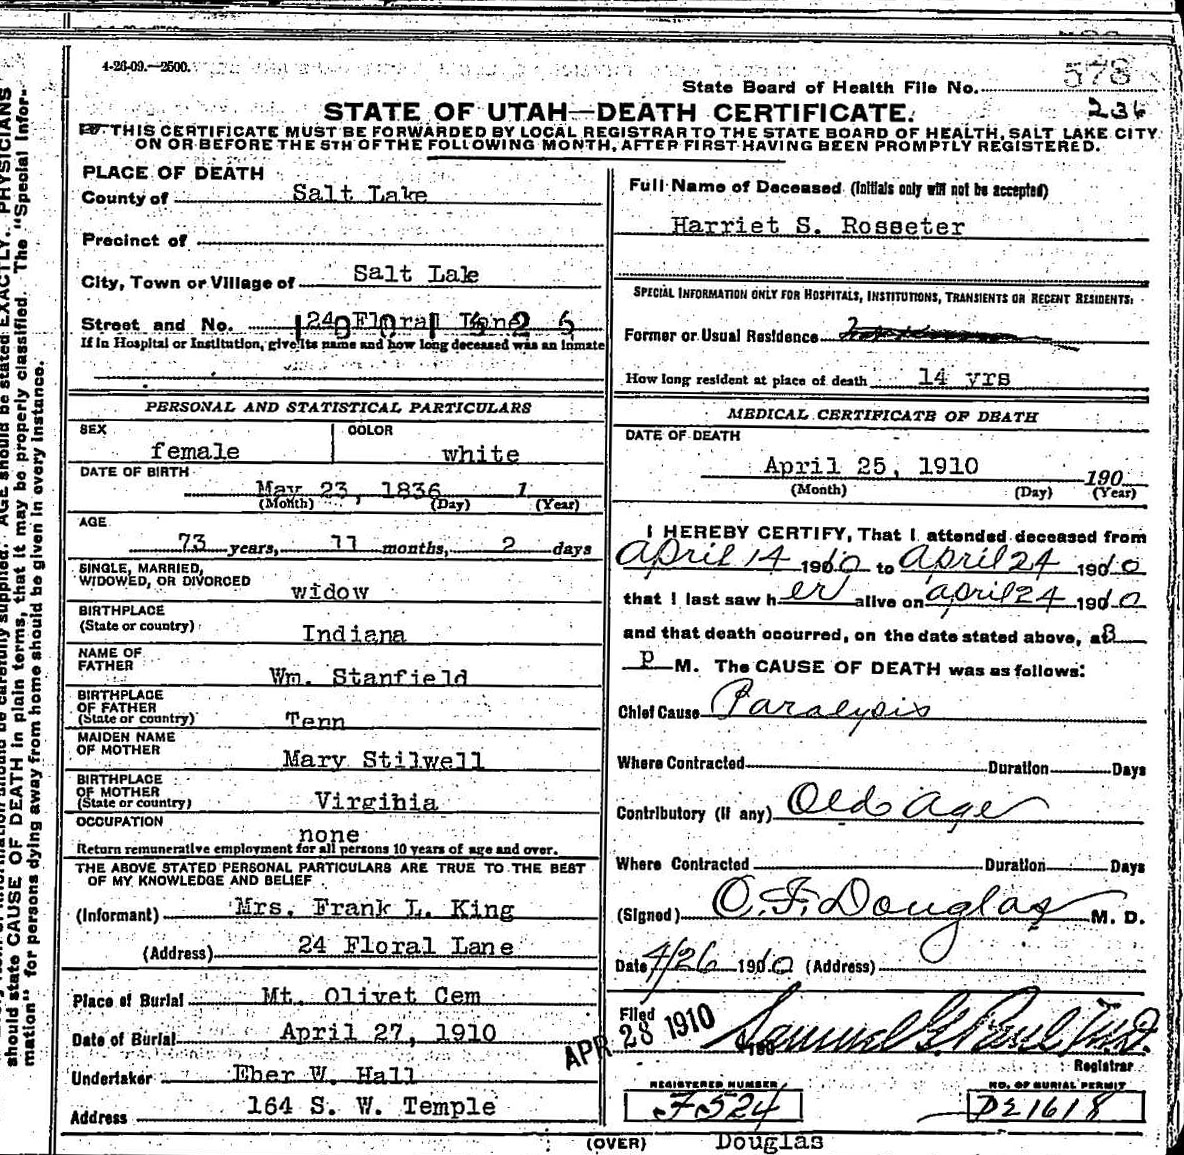 4-26-09.—2500.
578
State Board of Health File No.
236
STATE OF UTAH—DEATH CERTIFICATE.
THIS CERTIFICATE MUST BE FORWARDED BY LOCAL REGISTRAR TO THE STATE BOARD OF HEALTH, SALT LAKE CITY
ON OR BEFORE THE 5TH OF THE FOLLOWING MONTH, AFTER FIRST HAVING BEEN PROMPTLY REGISTERED.
PLACE OF DEATH
County of Salt Lake
Precinct of
City, Town or Village of Salt Lake
Street and No. 24 Floral Lane
If in Hospital or Institution, give its name and how long deceased was an inmate
PERSONAL AND STATISTICAL PARTICULARS
SEX COLOR
female white
DATE OF BIRTH
May 23, 1836 1
(Month) (Day) (Year)
AGE
73 years, 11 months, 2 days
SINGLE, MARRIED,
WIDOWED, OR DIVORCED
widow
BIRTHPLACE
(State or country)
Indiana
NAME OF
FATHER
Wm. Stanfield
BIRTHPLACE
OF FATHER
(State or country)
Tenn
MAIDEN NAME
OF MOTHER
Mary Stilwell
BIRTHPLACE
OF MOTHER
(State or country)
Virginia
OCCUPATION
none
Return remunerative employment for all persons 10 years of age and over.
THE ABOVE STATED PERSONAL PARTICULARS ARE TRUE TO THE BEST
OF MY KNOWLEDGE AND BELIEF
(Informant) Mrs. Frank L. King
(Address) 24 Floral Lane
Place of Burial Mt. Olivet Cem
Date of Burial April 27, 1910
Undertaker Eber W. Hall
Address 164 S. W. Temple
Full Name of Deceased (Initials only will not be accepted)
Harriet S. Rosseter
SPECIAL INFORMATION ONLY FOR HOSPITALS, INSTITUTIONS, TRANSIENTS OR RECENT RESIDENTS:
Former or Usual Residence
How long resident at place of death 14 yrs
MEDICAL CERTIFICATE OF DEATH
DATE OF DEATH
April 25, 1910 190
(Month) (Day) (Year)
I HEREBY CERTIFY, That I attended deceased from
April 14 1910 to April 24 1910
that I last saw her alive on April 24 1910
and that death occurred, on the date stated above, at 8
P M. The CAUSE OF DEATH was as follows:
Chief Cause Paralysis
Where Contracted Duration Days
Contributory (if any) Old Age
Where Contracted Duration Days
(Signed) O. F. Douglas M. D.
Date 4/26 1910 (Address)
Filed
APR 28 1910 190 Samuel G. Paul M.D.
Registrar
REGISTERED NUMBER NO. OF BURIAL PERMIT
F524 D21618
(OVER) Douglas
AGE should be stated EXACTLY. PHYSICIANS
should state CAUSE OF DEATH in plain terms, that it may be properly classified. The "Special Infor-
mation" for persons dying away from home should be given in every instance.